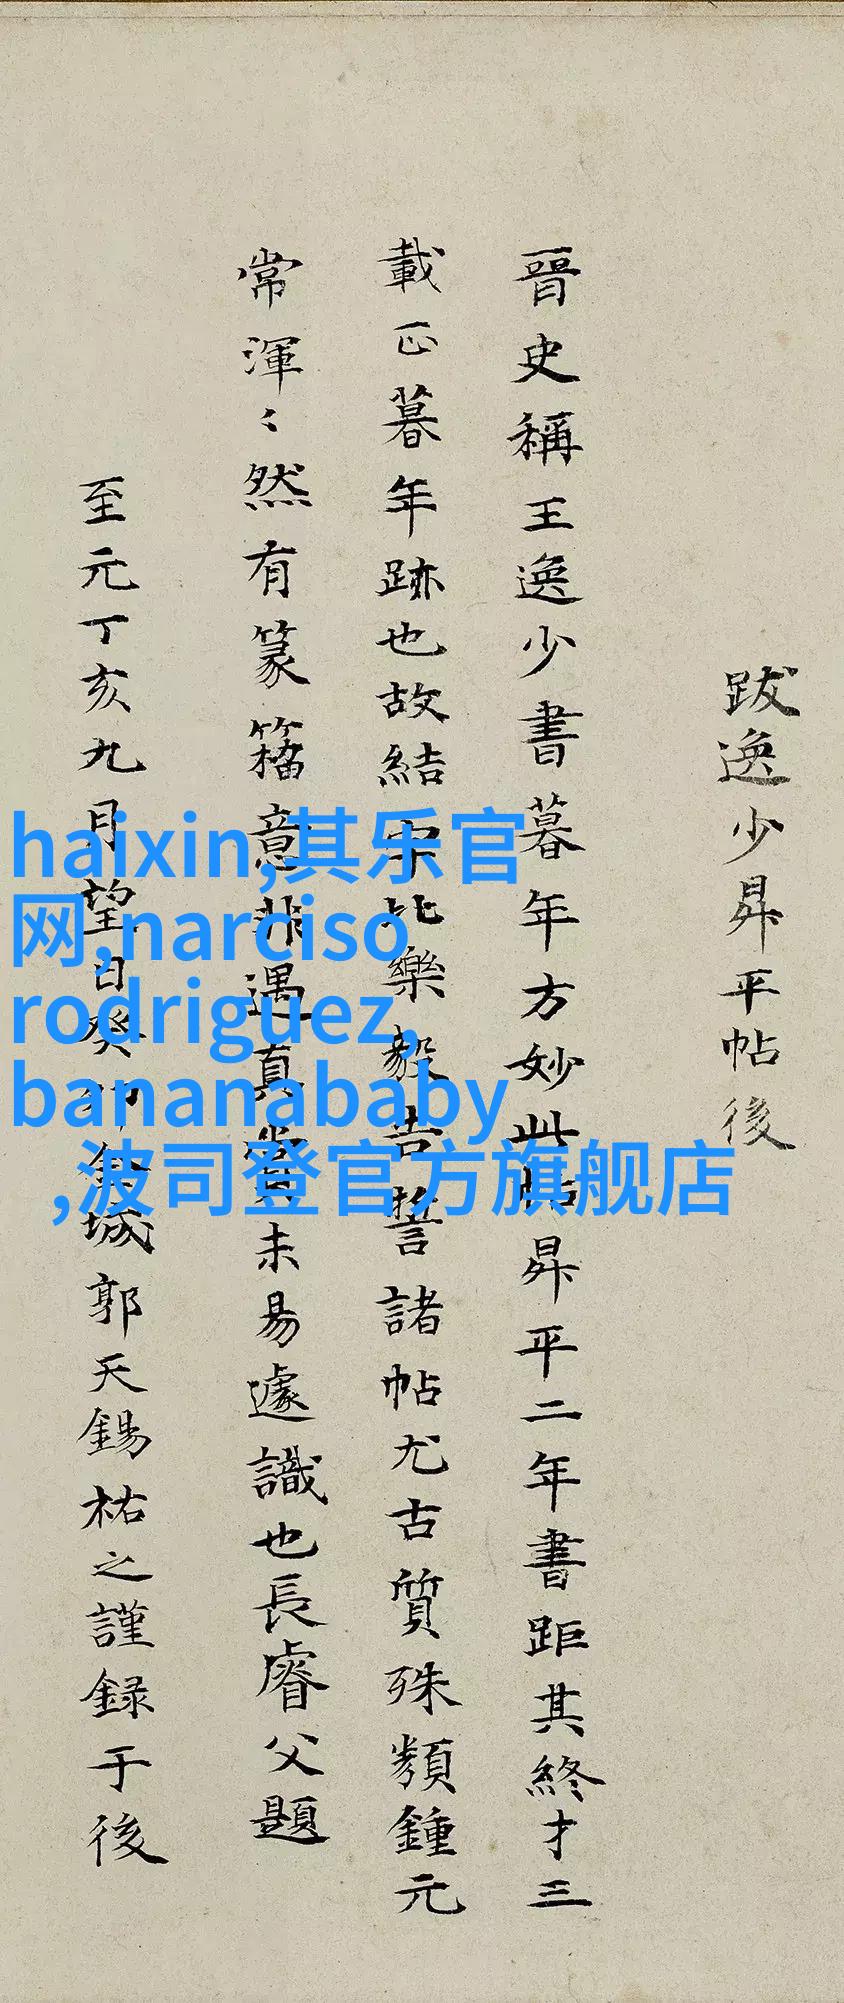 跋逸少昇平帖後
晉史稱王逸少書暮年方妙此帖昇平二年書距其終才三
載正暮年跡也故結字比樂毅告誓諸帖尤古質殊類鍾元
常渾〻然有篆籀意非遇真賞未易遽識也長睿父題
至元丁亥九月望日癸卯金城郭天錫祐之謹録于後
haixin,其乐官
网,narciso
rodriguez,
bananababy
,波司登官方旗舰店